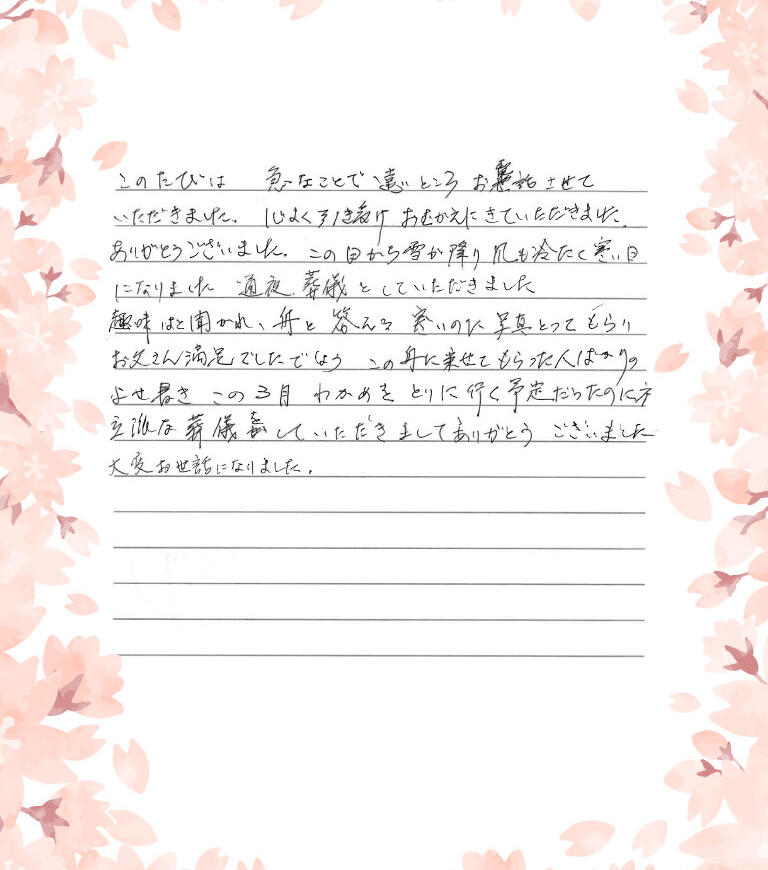 このたびは 急なことで遠いところ お電話させて
いただきました。 心よく引き受け おむかえにきていただきました。
ありがとうございました。この日から雪が降り 風も冷たく寒い日
になりました 通夜、葬儀としていただきました
趣味はと聞かれ、舟と 答える 寒いのに 写真とってもらい
お父さん満足でしたでしょう この舟に乗せてもらった人ばかりの
よせ書き この3月 わかめを とりに行く予定だったのに
立派な 葬儀 していただきましてありがとう ございました
大変お世話になりました。